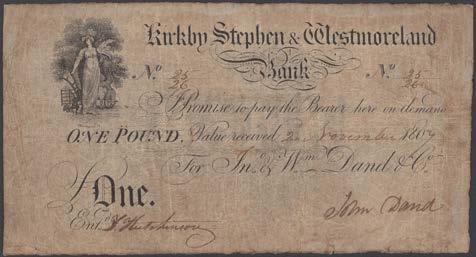 Kirkby Stephen & Westmoreland
Bank
No. 25/26 No. 25/26
I Promise to pay the Bearer here on demand
ONE POUND, Value received 2 November 1809
For Jno. & Wm. Dand & Co.
£ One.
John Dand
Entd. J. Hutchinson